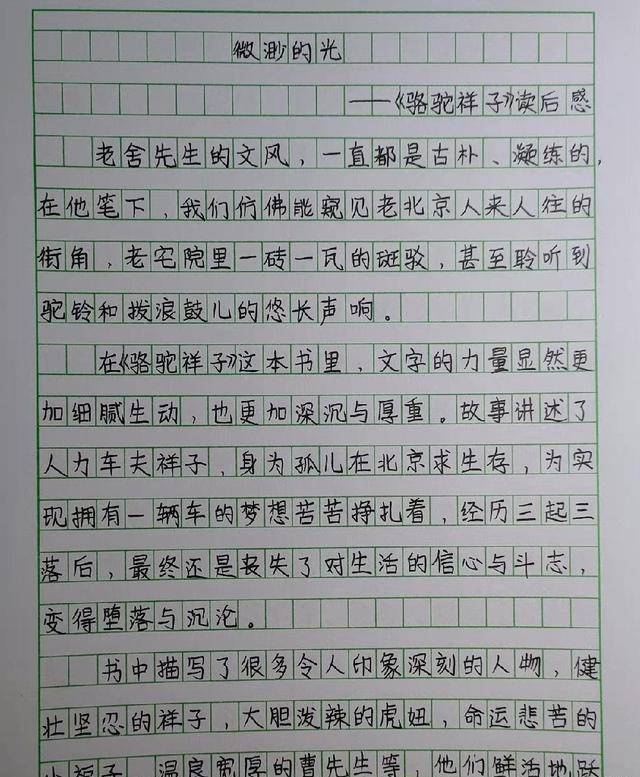 微渺的光
——《骆驼祥子》读后感
老舍先生的文风，一直都是古朴、凝练的，
在他笔下，我们仿佛能窥见老北京人来人往的
街角，老宅院里一砖一瓦的斑驳，甚至聆听到
驼铃和拨浪鼓儿的悠长声响。
在《骆驼祥子》这本书里，文字的力量显然更
加细腻生动，也更加深沉与厚重。故事讲述了
人力车夫祥子，身为孤儿在北京求生存，为实
现拥有一辆车的梦想苦苦挣扎着，经历三起三
落后，最终还是丧失了对生活的信心与斗志，
变得堕落与沉沦。
书中描写了很多令人印象深刻的人物，健
壮坚忍的祥子，大胆泼辣的虎妞，命运悲苦的
小福子，温良宽厚的曹先生等，他们鲜活地跃